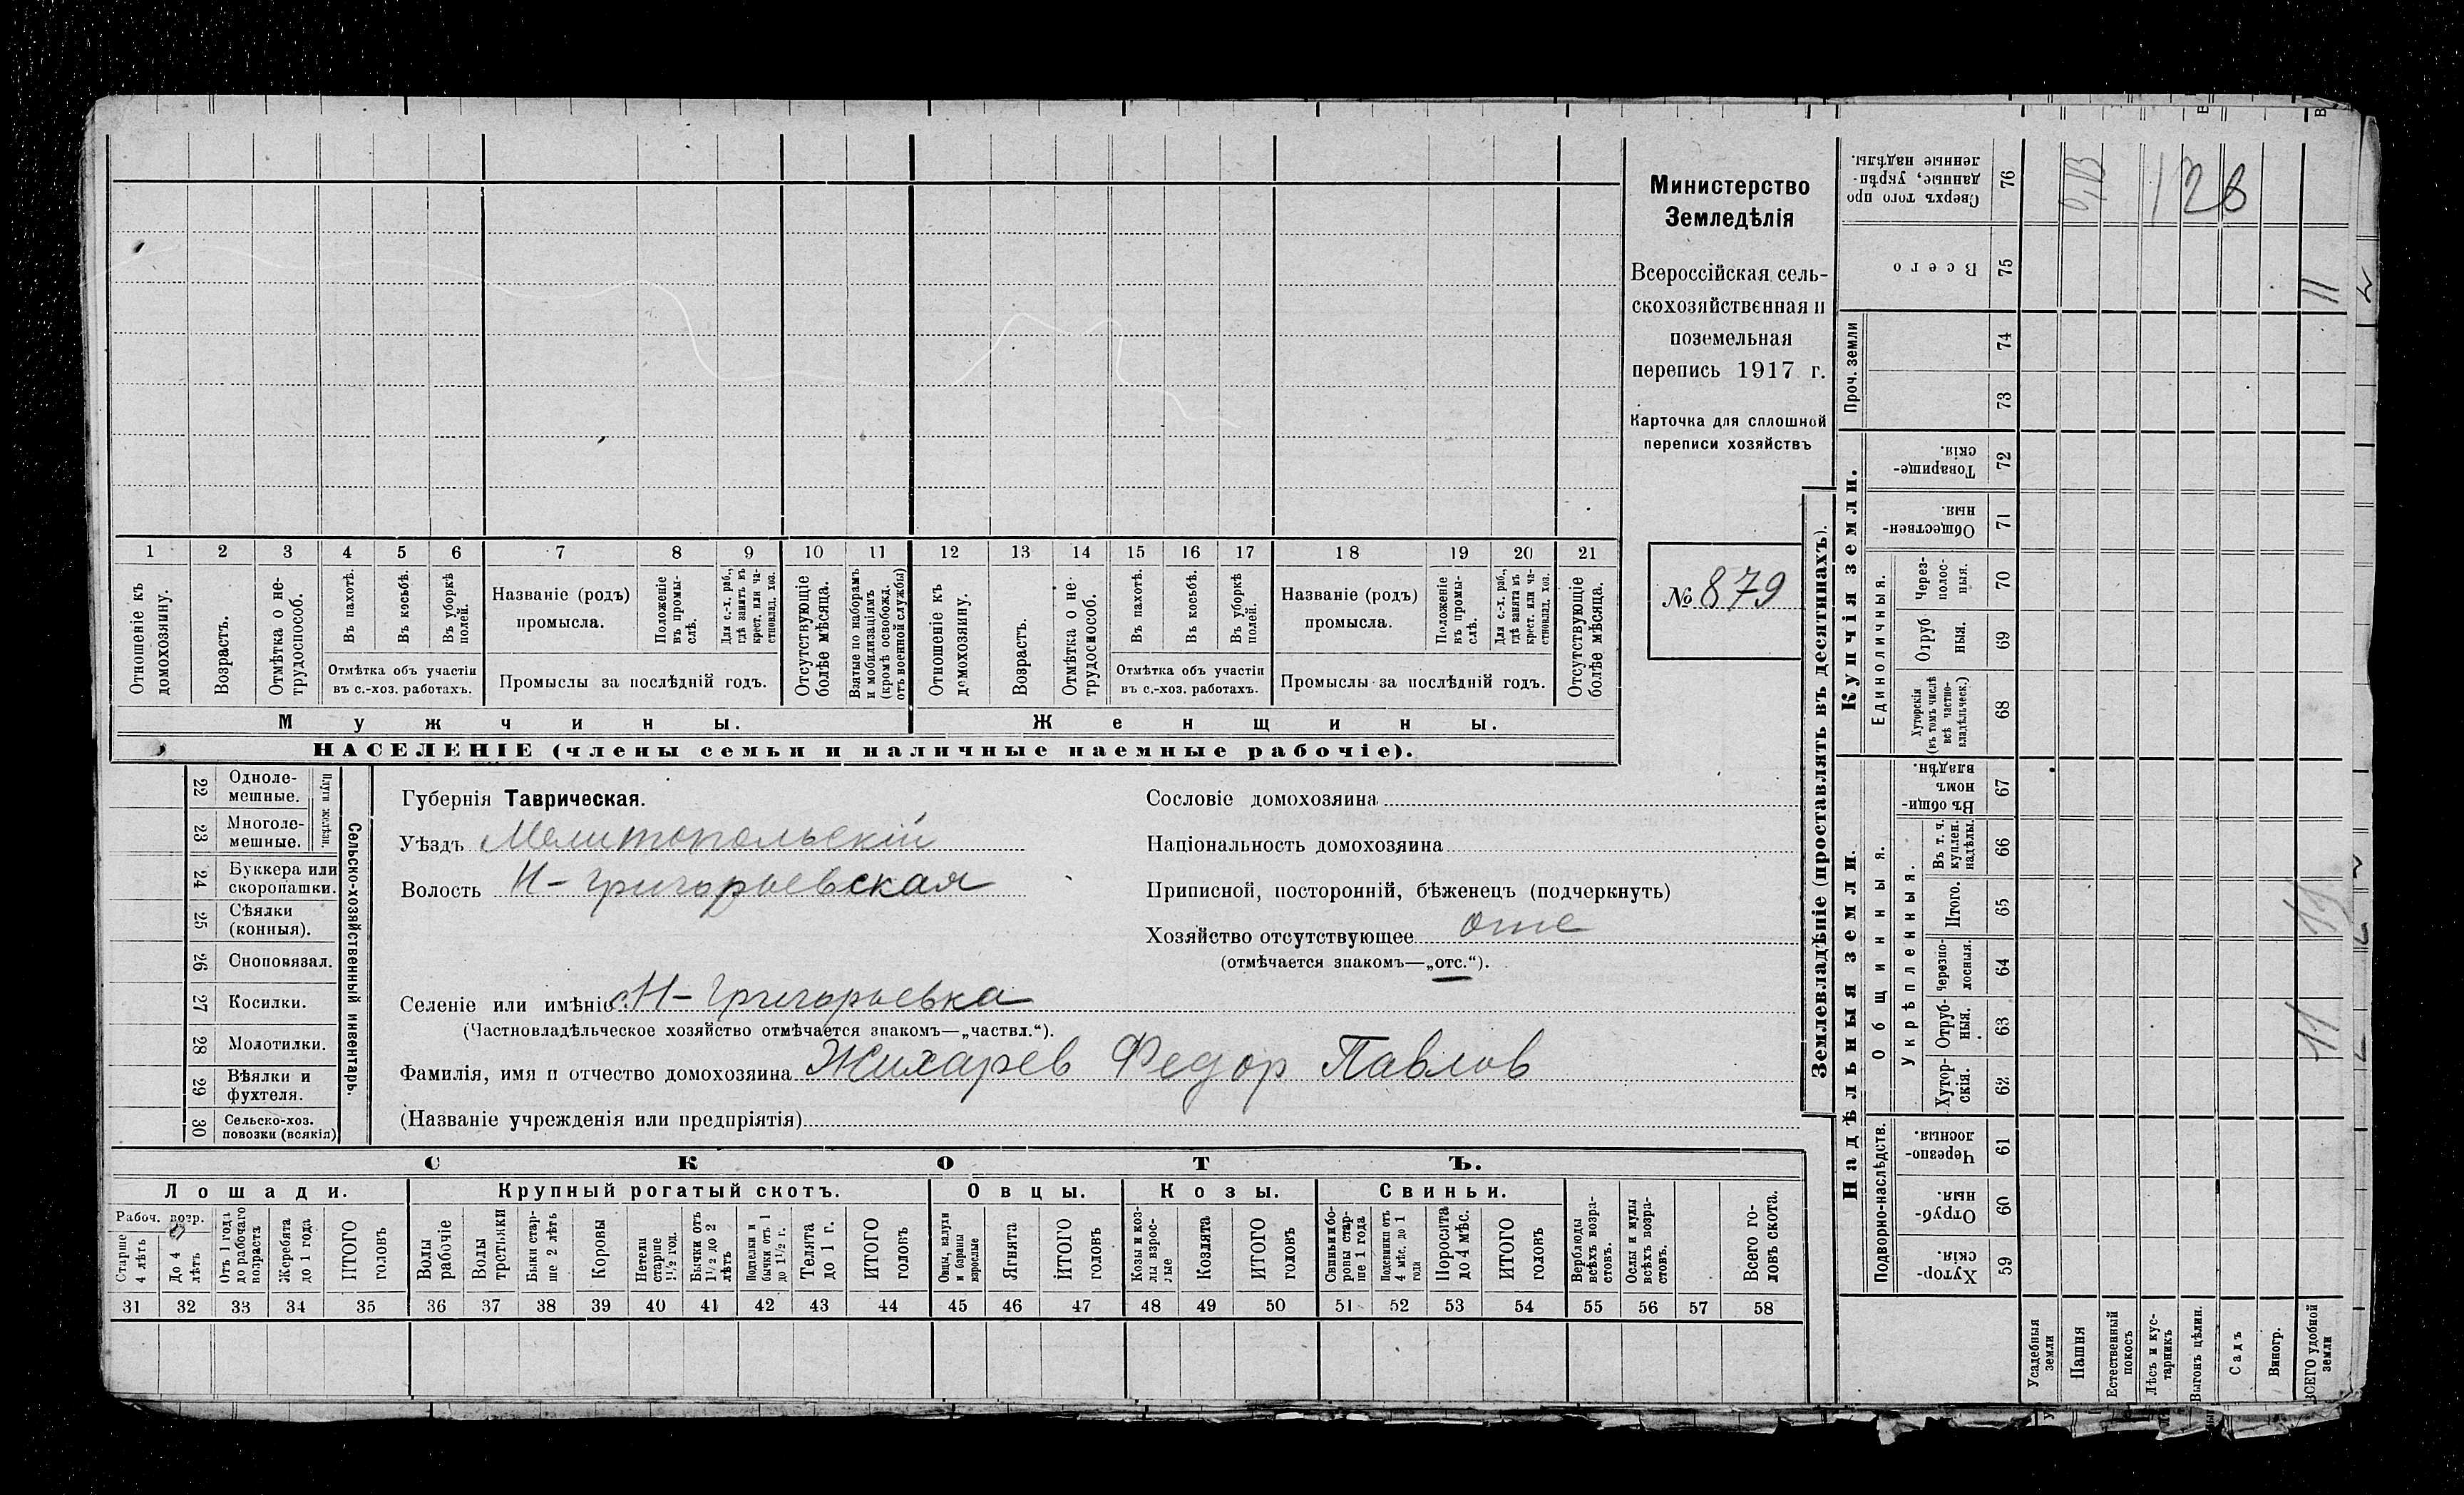 Министерство
Земледѣлія
Всероссійская сель-
скохозяйственная и
поземельная
перепись 1917 г.
Карточка для сплошной
переписи хозяйствъ
№ 879
1 2 3 4 5 6 7 8 9 10 11 12 13 14 15 16 17 18 19 20 21
Отношеніе къ домохозяину.
Возрастъ.
Отмѣтка о не-трудоспособ.
Въ пахотѣ.
Въ косьбѣ.
Въ уборкѣ полей.
Отмѣтка объ участіи
въ с.-хоз. работахъ.
Названіе (родъ)
промысла.
Положеніе въ промы-слѣ.
Для с.-х. раб., гдѣ занятъ въ крест. или ча-стновлад. хоз.
Промыслы за послѣдній годъ.
Отсутствующіе болѣе мѣсяца.
Взятые по наборамъ и мобилизаціямъ (кромѣ освобожд. отъ военной службы)
Отношеніе къ домохозяину.
Возрастъ.
Отмѣтка о не-трудоспособ.
Въ пахотѣ.
Въ косьбѣ.
Въ уборкѣ полей.
Отмѣтка объ участіи
въ с.-хоз. работахъ.
Названіе (родъ)
промысла.
Положеніе въ промы-слѣ.
Для с.-х. раб., гдѣ занята въ крест. или ча-стновлад. хоз.
Промыслы за послѣдній годъ.
Отсутствующіе болѣе мѣсяца.
Мужчины.
Женщины.
НАСЕЛЕНІЕ (члены семьи и наличные наемные рабочіе).
Сельско-хозяйственный инвентарь.
Плуги желѣзн.
22 Одноле-
мешные.
23 Многоле-
мешные.
24 Буккера или
скоропашки.
25 Сѣялки
(конныя).
26 Сноповязал.
27 Косилки.
28 Молотилки.
29 Вѣялки и
фухтеля.
30 Сельско-хоз.
повозки (всякія)
Губернія Таврическая.
Уѣздъ Мелитопольскій
Волость Н-Григорьевская
Селеніе или имѣніе с. Н-Григорьевка
(Частновладѣльческое хозяйство отмѣчается знакомъ—„частвл.“).
Фамилія, имя и отчество домохозяина Жихарев Федор Павлов
(Названіе учрежденія или предпріятія)
Сословіе домохозяина
Національность домохозяина
Приписной, посторонній, бѣженецъ (подчеркнуть)
Хозяйство отсутствующее отс
(отмѣчается знакомъ—„отс.“).
СКОТЪ.
Лошади.
Крупный рогатый скотъ.
Овцы.
Козы.
Свиньи.
Рабоч. возр.
Старше 4 лѣтъ
До 4 лѣтъ
Отъ 1 года до рабочаго возраста
Жеребята до 1 года
ИТОГО головъ
Волы рабочіе
Волы третьяки
Быки стар-ше 2 лѣтъ
Коровы
Нетели старше 1½ год.
Бычки отъ 1½ до 2 лѣтъ
Подтелки и бычки отъ 1 до 1½ г.
Телята до 1 г.
ИТОГО головъ
Овцы, валухи и бараны взрослые
Ягнята
ИТОГО головъ
Козы и коз-лы взрос-лые
Козлята
ИТОГО головъ
Свиньи и бо-ровы стар-ше 1 года
Подсвинки отъ 4 мѣс. до 1 года
Поросята до 4 мѣс.
ИТОГО головъ
Верблюды всѣхъ возра-стовъ.
Ослы и мулы всѣхъ возра-стовъ.
Всего го-ловъ скота.
31 32 33 34 35 36 37 38 39 40 41 42 43 44 45 46 47 48 49 50 51 52 53 54 55 56 57 58
Землевладѣніе (проставлять въ десятинахъ).
Надѣльныя земли.
Купчія земли.
Проч. земли
Подворно-наслѣдств.
Общинныя.
Укрѣпленныя.
Единоличныя.
Хутор-скія. 59
Отруб-ныя. 60
Черезпо-лосныя. 61
Хутор-скія. 62
Отруб-ныя. 63
Черезпо-лосныя. 64
Итого. 65
Въ т. ч. куплен. надѣлы. 66
Въ общи-номъ владѣн. 67
Хуторскія (въ томъ числѣ всѣ частно-владѣльческ.) 68
Отруб ныя. 69
Через-полос-ныя. 70
Обществен-ныя. 71
Товарище-скія. 72
73
74
Всего 75
Сверхъ того про данные, укрѣп-ленные надѣлы. 76
Усадебныя земли
Пашня
Естественный покосъ
Лѣсъ и кус-тарникъ
Выгонъ цѣлин.
Садъ
Виногр.
ВСЕГО удобной земли
128
11
11
11